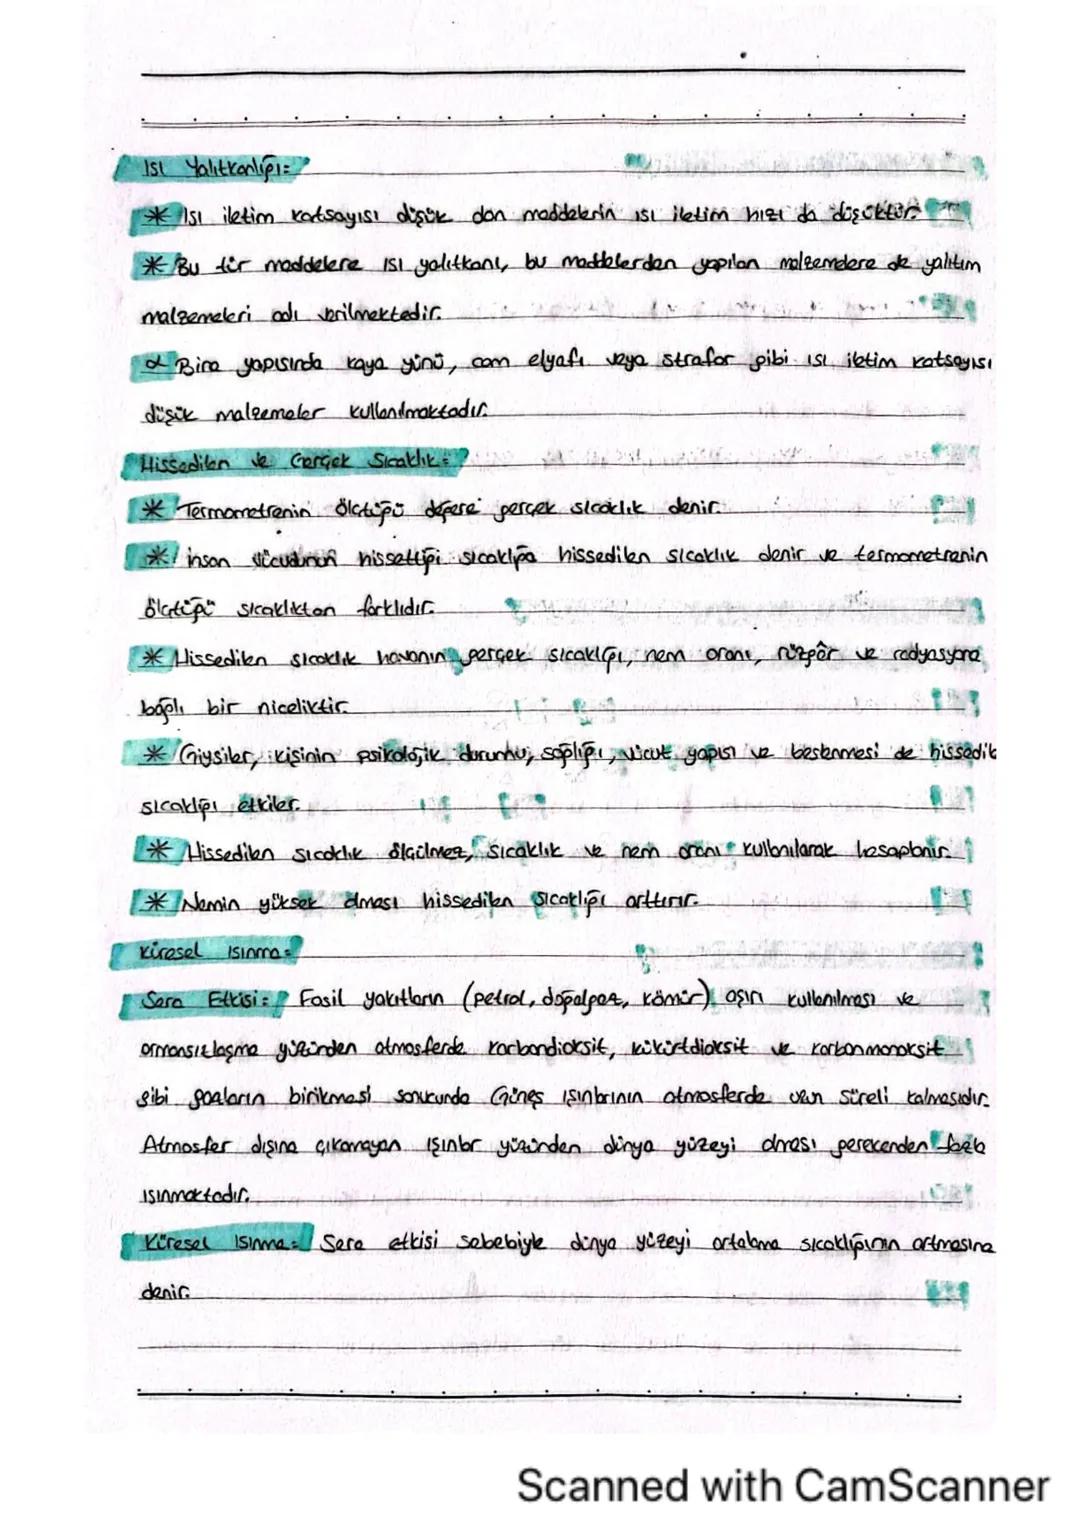 Isı Yalıtkanlığı:
* Isı iletim katsayısı düşük olan maddelerin ısı iletim hızı da düşüktür.
* Bu tür maddelere ısı yalıtkanı, bu maddelerden yapılan malzemelere de yalıtım
malzemeleri adı verilmektedir.
* Bina yapısında kaya yünü, cam elyafı veya strafor gibi ısı iletim katsayısı
düşük malzemeler kullanılmaktadır.
Hissedilen ve Gerçek Sıcaklık:
* Termometrenin ölçtüğü değere gerçek sıcaklık denir.
* İnsan vücudunun hissettiği sıcaklığa hissedilen sıcaklık denir ve termometrenin
ölçtüğü sıcaklıktan farklıdır.
* Hissedilen sıcaklık havanın gerçek sıcaklığı, nem oranı, rüzgâr ve radyasyona
bağlı bir niceliktir.
* Giysiler, kişinin psikolojik durumu, sağlığı, vücut yapısı ve beslenmesi de hissedile
sıcaklığı etkiler.
* Hissedilen sıcaklık ölçülmez, sıcaklık ve nem oranı kullanılarak hesaplanır.
* Nemin yüksek olması hissedilen sıcaklığı arttırır.
Küresel Isınma:
Sera Etkisi: Fosil yakıtların (petrol, doğalgaz, kömür) aşırı kullanılması ve
ormansızlaşma yüzünden atmosferde karbondioksit, kükürtdioksit ve karbonmonoksit
gibi gazların birikmesi sonucunda Güneş ışınlarının atmosferde uzun süreli kalmasıdır.
Atmosfer dışına çıkamayan ışınlar yüzünden dünya yüzeyi olması gerekenden fazla
ısınmaktadır.
Küresel Isınma: Sera etkisi sebebiyle dünya yüzeyi ortalama sıcaklığının artmasına
denir.
Scanned with CamScanner